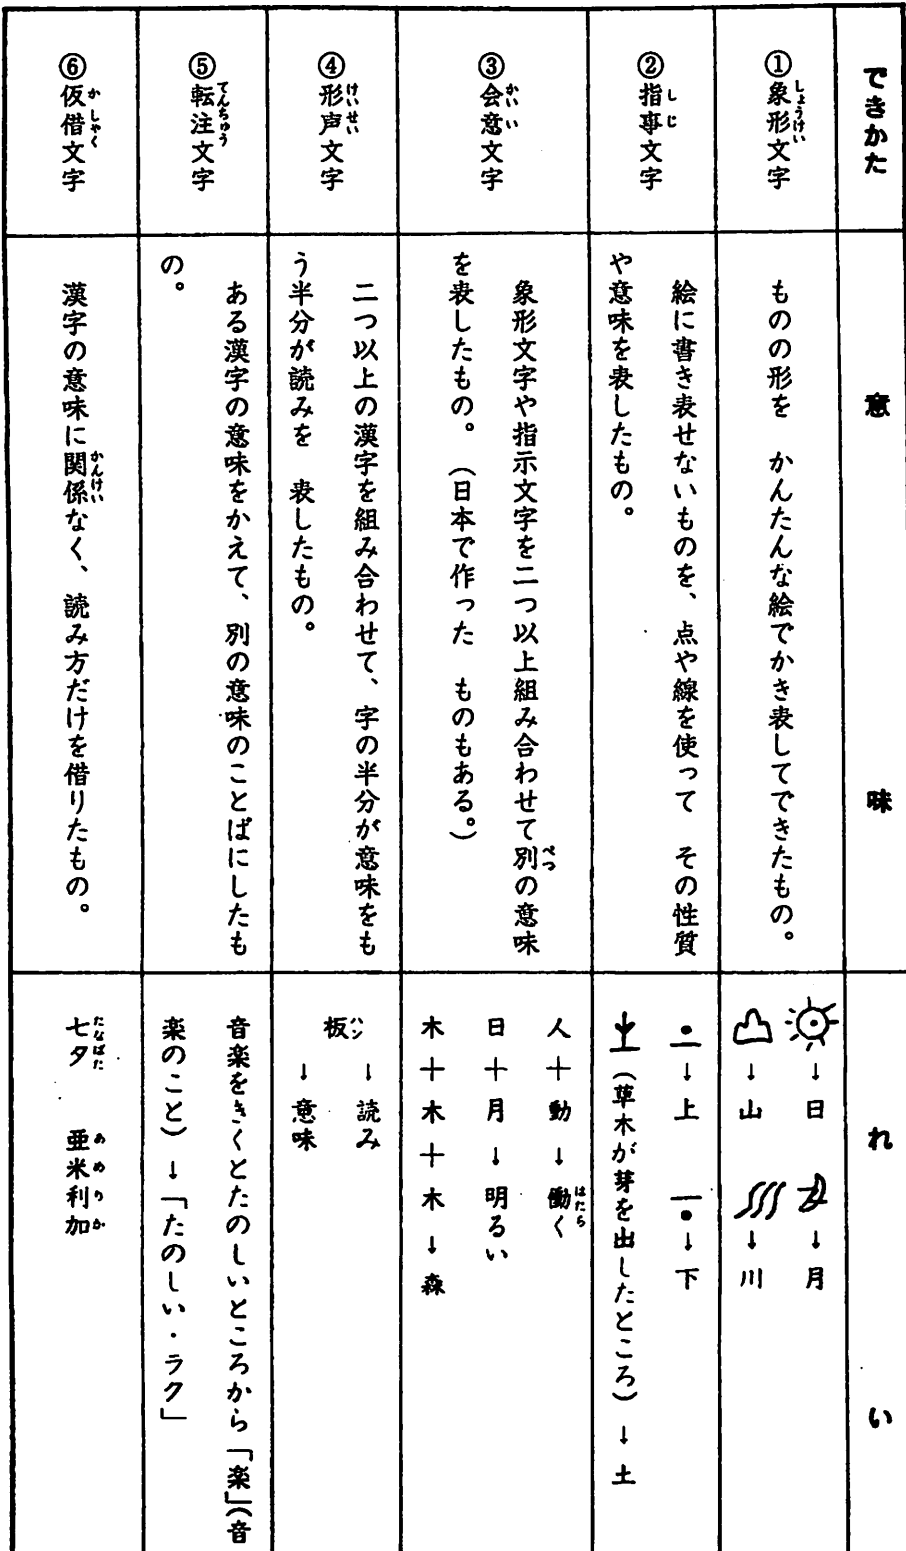 できかた
意味
れい
①象形文字
しょうけい
ものの形を　かんたんな絵でかき表してできたもの。
→日　→月
→山　→川
②指事文字
しじ
絵に書き表せないものを、点や線を使って　その性質
や意味を表したもの。
→上　→下
（草木が芽を出したところ）→土
③会意文字
かいい
象形文字や指示文字を二つ以上組み合わせて別の意味
べつ
を表したもの。（日本で作った　ものもある。）
人＋動→働く
はたら
日＋月→明るい
木＋木＋木→森
④形声文字
けいせい
二つ以上の漢字を組み合わせて、字の半分が意味をも
う半分が読みを　表したもの。
板
ハン
→読み
→意味
⑤転注文字
てんちゅう
ある漢字の意味をかえて、別の意味のことばにしたも
の。
音楽をきくとたのしいところから「楽」（音
楽のこと）→「たのしい・ラク」
⑥仮借文字
かしゃく
漢字の意味に関係なく、読み方だけを借りたもの。
かんけい
七夕　亜米利加
たなばた　あめりか